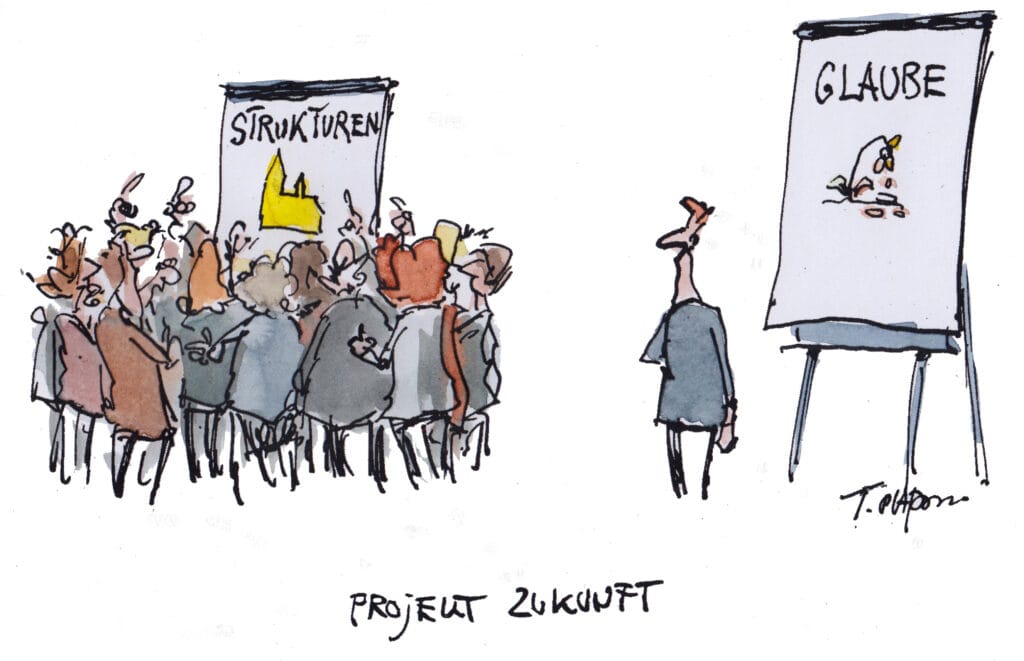 STRUKTUREN
GLAUBE
T. PLAßMANN
PROJEKT ZUKUNFT